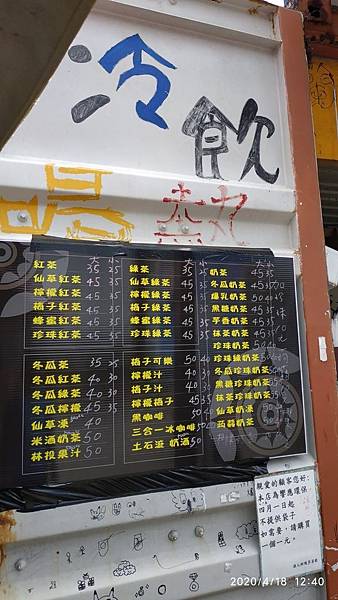 冷飲
大 小
紅茶 35 25
仙草紅茶 45 35
檸檬紅茶 45 35
梅子紅茶 45 35
蜂蜜紅茶 45 35
珍珠紅茶 45 35
大 小
綠茶 35 25
仙草綠茶 45 35
檸檬綠茶 45 35
梅子綠茶 45 35
蜂蜜綠茶 45 35
珍珠綠茶 45 35
大 小
奶茶 45 35
冬瓜奶茶 45 35
黑糖奶茶
芋香奶茶
抹茶奶茶
珍珠奶茶
珍珠綠奶茶
冬瓜珍珠奶茶
黑糖珍珠奶茶
抹茶珍珠奶茶
仙草奶凍
蒟蒻奶茶
冬瓜茶 35 25
冬瓜紅茶 40 30
冬瓜綠茶 40 30
冬瓜檸檬 45 35
仙草凍 40
米酒奶茶 50
林投果汁 50
梅子可樂 50 40
檸檬汁 40 30
梅子汁 40 30
檸檬梅子 45 35
黑咖啡 50 40
三合一冰咖啡
土石流 奶酒 50
親愛的顧客您好:
本店為響應環保
四月一日起
不提供袋子
如需要,請購買
一個一元。
2020/4/18 12:40